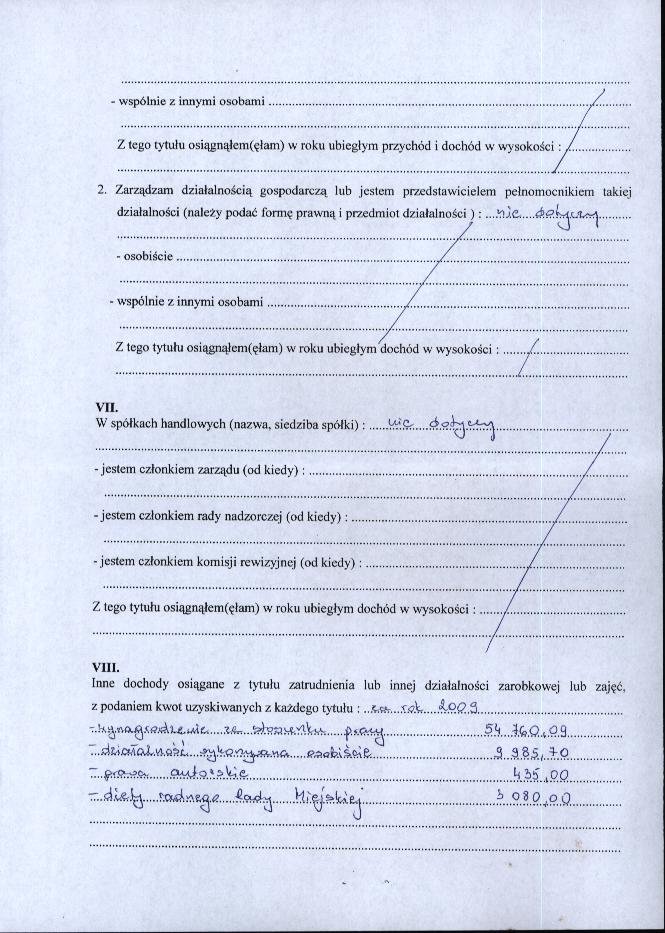 - wspólnie z innymi osobami
Z tego tytułu osiągnąłem(ęłam) w roku ubiegłym przychód i dochód w wysokości :
2. Zarządzam działalnością gospodarczą lub jestem przedstawicielem pełnomocnikiem takiej
działalności (należy podać formę prawną i przedmiot działalności ) : nie dotyczy
- osobiście
- wspólnie z innymi osobami
Z tego tytułu osiągnąłem(ęłam) w roku ubiegłym dochód w wysokości :
VII.
W spółkach handlowych (nazwa, siedziba spółki) : nie dotyczy
- jestem członkiem zarządu (od kiedy) :
- jestem członkiem rady nadzorczej (od kiedy) :
- jestem członkiem komisji rewizyjnej (od kiedy) :
Z tego tytułu osiągnąłem(ęłam) w roku ubiegłym dochód w wysokości :
VIII.
Inne dochody osiągane z tytułu zatrudnienia lub innej działalności zarobkowej lub zajęć,
z podaniem kwot uzyskiwanych z każdego tytułu : za rok 2009
- wynagrodzenie ze stosunku pracy 54 760,09
- działalność wykonywana osobiście 9 985,70
- prawa autorskie 435,00
- diety radnego Rady Miejskiej 080,00